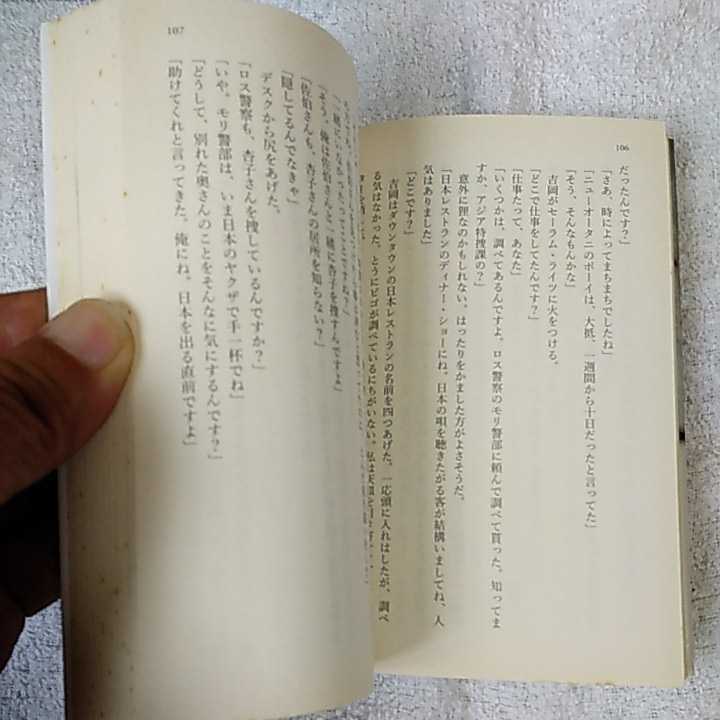 106
だったんです？」
「さあ、時によってまちまちでしたね」
「ニューオータニのボーイは、大抵、一週間から十日だったと言ってた」
「そう、そんなもんかな」
吉岡がセーラム・ライツに火をつける。
「どこで仕事をしてたんです？」
「仕事たって、あなた」
「いくつかは、調べてあるんですよ。ロス警察のモリ警部に頼んで調べて貰った。知ってま
すか、アジア特捜課の？」
意外に狸なのかもしれない。はったりをかました方がよさそうだ。
「日本レストランのディナー・ショーにね。日本の唄を聴きたがる客が結構いましてね、人
気はありました」
「どこです？」
吉岡はダウンタウンの日本レストランの名前を四つあげた。一応頭に入れはしたが、調べ
る気はなかった。とうにビゴが調べているにちがいない。私は
107
一緒にいなかったってことですね？」
「そう。俺は佐伯さんと一緒に杏子を捜すんですよ」
「佐伯さんも、杏子さんの居所を知らない？」
「隠してるんでなきゃ」
デスクから尻をあげた。
「ロス警察も、杏子さんを捜しているんですか？」
「いや。モリ警部は、いま日本のヤクザで手一杯でね」
「どうして、別れた奥さんのことをそんなに気にするんです？」
「助けてくれと言ってきた。俺にね。日本を出る直前ですよ」